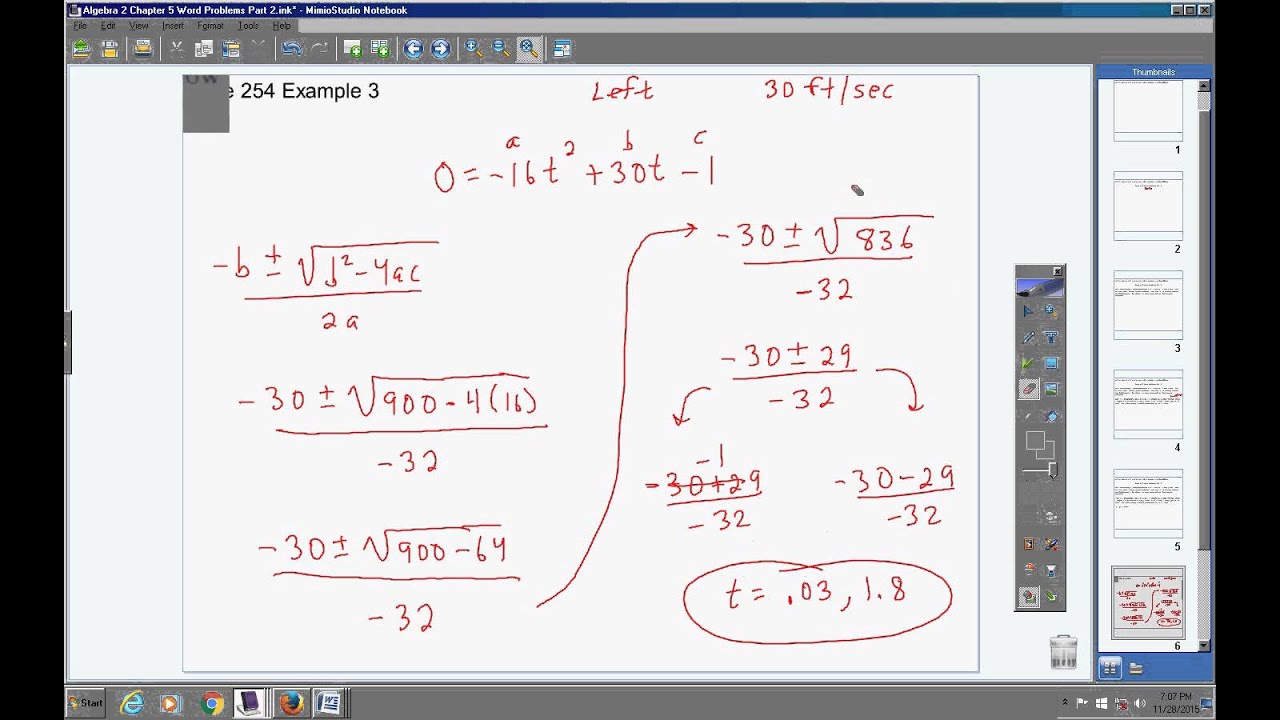 Algebra 2 Chapter 5 Word Problems Part 2.ink* - MimioStudio Notebook
File Edit View Insert Format Tools Help
254 Example 3
Left 30 ft/sec
a b c
0 = -16t² + 30t - 1
-b ± √b²-4ac
2a
-30 ± √900-4(16)
-32
-30 ± √900-64
-32
-30 ± √836
-32
-30 ± 29
-32
-1
-30+29
-32
-30-29
-32
t = .03, 1.8
Thumbnails
1
2
3
4
5
6
Start
7:07 PM